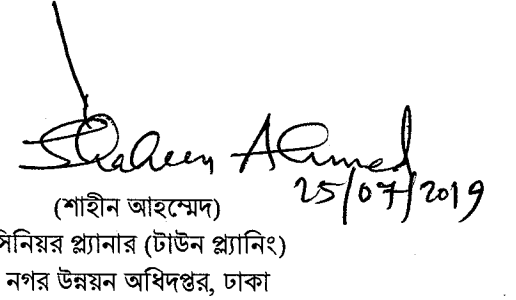 Shaheen Ahmed
25/07/2019
(শাহীন আহম্মেদ)
সিনিয়র প্ল্যানার (টাউন প্ল্যানিং)
নগর উন্নয়ন অধিদপ্তর, ঢাকা